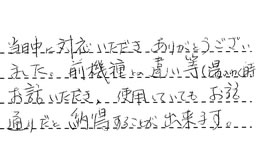 当日中に対応いただき ありがとうござい
ました。前機種との違い等(購入時
お話いただき、使用していても お話
通りだと納得することが出来ます。